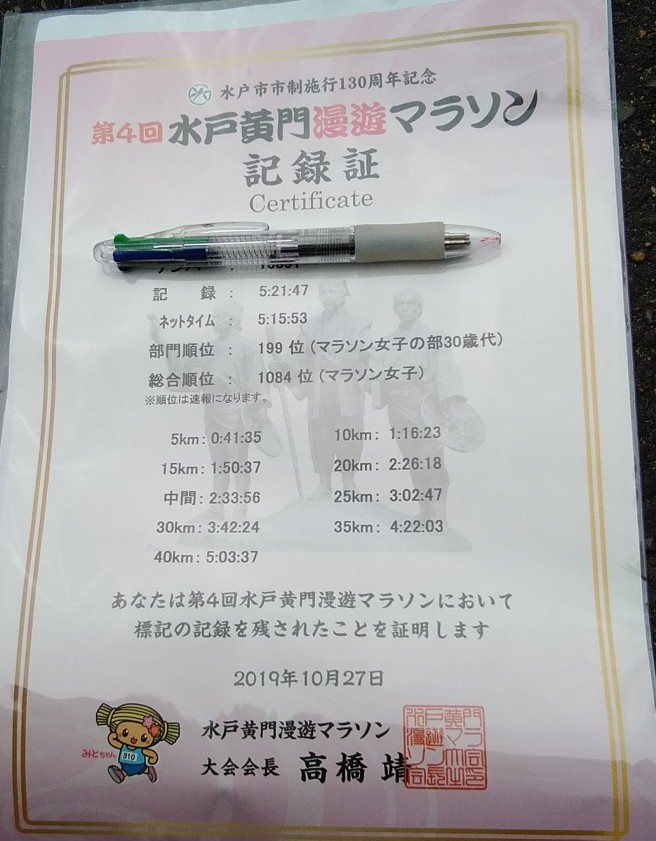 水戸市市制施行130周年記念
第4回 水戸黄門漫遊マラソン
記録証
Certificate
記　録 : 5:21:47
ネットタイム : 5:15:53
部門順位 : 199 位 (マラソン女子の部30歳代)
総合順位 : 1084 位 (マラソン女子)
※順位は速報になります。
5km: 0:41:35 10km: 1:16:23
15km: 1:50:37 20km: 2:26:18
中間: 2:33:56 25km: 3:02:47
30km: 3:42:24 35km: 4:22:03
40km: 5:03:37
あなたは第4回水戸黄門漫遊マラソンにおいて
標記の記録を残されたことを証明します
2019年10月27日
みとちゃん
310
水戸黄門漫遊マラソン
大会会長 高橋 靖